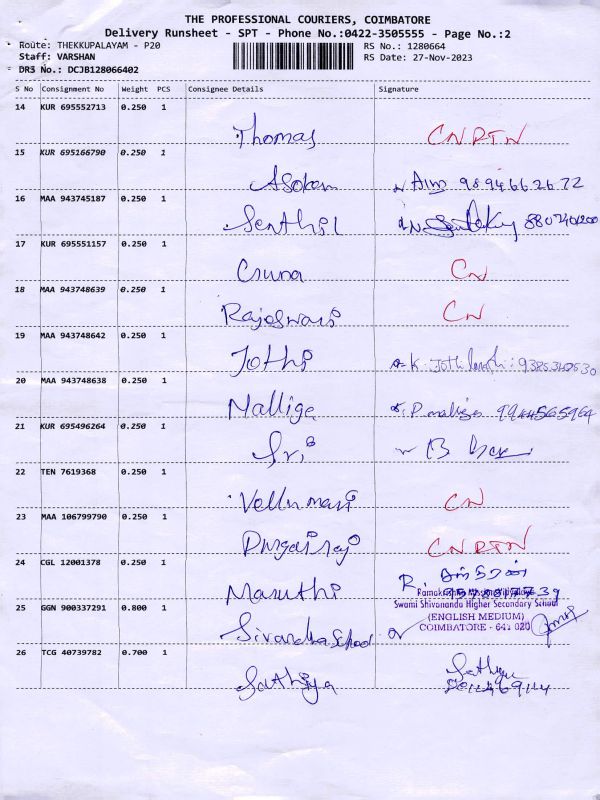 THE PROFESSIONAL COURIERS, COIMBATORE
Delivery Runsheet - SPT - Phone No.:0422-3505555 - Page No.:2
Route: THEKKUPALAYAM - P20 RS No.: 1280664
Staff: VARSHAN RS Date: 27-Nov-2023
DRS No.: DCJB128066402
S No Consignment No Weight PCS Consignee Details Signature
14 KUR 695552713 0.250 1
Thomas CNRTN
15 KUR 695166790 0.250 1
Asokan 9894662672
16 MAA 943745187 0.250 1
Senthil
17 KUR 695551157 0.250 1
CN
18 MAA 943748639 0.250 1
Rajeswari CN
19 MAA 943748642 0.250 1
Jothi
20 MAA 943748638 0.250 1
Malliga P. 9944565964
21 KUR 695496264 0.250 1
Sri B
22 TEN 7619368 0.250 1
Vellumani CN
23 MAA 106799790 0.250 1
Durgairaj CNRTN
24 CGL 12001378 0.250 1
Maruthi R.
25 GGN 900337291 0.800 1
Swami Shivananda Higher Secondary School
(ENGLISH MEDIUM)
COIMBATORE - 641 020
Sivandha School
26 TCG 40739782 0.700 1
Sathiya Sathiya